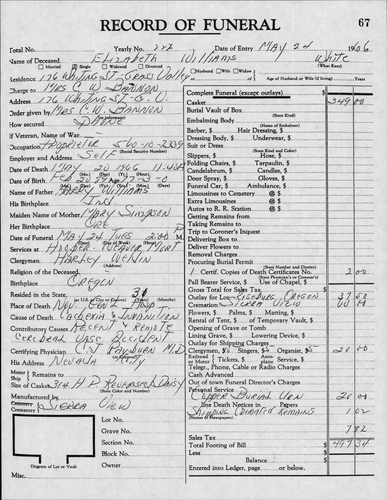 RECORD OF FUNERAL 67
Total No. Yearly No. Date of Entry MAY 24 1966
Name of Deceased ELIZABETH WILLIAMS White
(What Race)
Married Single Widowed Divorced Husband Wife Widow Age of Husband or Wife (if living) Years
Residence 176 WHITING ST - GRASS VALLEY
Charge to MRS C W BANNON
Address 176 WHITING ST - G. V.
Order given by MRS C W BANNON
How Secured ABOVE
If Veteran, Name of War
Occupation PROPRIETOR
(Social Security Number)
Employer and Address SELF
Date of Death MAY 20 1966 11:40
Date of Birth
Name of Father HARRY WILLIAMS
His Birthplace IND
Maiden Name of Mother MARY SIMPSON
Her Birthplace ORE
Date of Funeral MAY 24 TUES 2:00 P
Services at HOOPER-WEAVER MORT
Clergyman HARLEY
Religion of the Deceased
Birthplace OREGON
Resided in the State
Place of Death NEV GEN HOSP
Cause of Death CACHEXIA & INANITION
Contributory Causes RECENT & REMOTE
CEREBRAL VASC ACCIDENT
Certifying Physician M.D.
His Address NEVADA CITY
Motor Remains to
Ship
Size of Casket
(State Color and Number)
Manufactured by
Cemetery
Crematory SIERRA VIEW
Lot No.
Grave No.
Section No.
Block No.
Owner
Diagram of Lot or Vault
Misc.
Complete Funeral (except outlays) $
Casket 349 00
Burial Vault of Box
(State Kind)
Embalming Body
(State Name of Embalmer)
Barber, $ Hair Dressing, $
Dressing Body, $ Underwear, $
Suit or Dress
(State Kind and Color)
Slippers, $ Hose, $
Folding Chairs, $ Tarpaulin, $
Candelabrum, $ Candles, $
Door Spray, $ Gloves, $
Funeral Car, $ Ambulance, $
Limousines to Cemetery @ $
Extra Limousines @ $
Autos to R. R. Station @ $
Getting Remains from
Taking Remains to
Trip to Coroner's Inquest
Delivering Box to
Deliver Flowers to
Removal Charges
Procuring Burial Permit
(State Number and District)
1 Certif. Copies of Death Certificates No. 2 00
(State Physician's or Coroner's)
Pall Bearer Service, $ Use of Chapel, $
Gross Total for Sales Tax $
Outlay for Lot ROSEBURG, OREGON 37 50
Cremation SIERRA VIEW
Flowers, $ Palms, $ Matting, $
Rental of Tent, $ of Temporary Vault, $
Opening of Grave or Tomb
Lining Grave, $ Lowering Device, $
Outlay for Shipping Charges
Clergymen, $ Singers, $ Organist, $ 20 00
Tickets, $ Service, $
Telegr., Phone, Cable or Radio Charges
Cash Advanced
Out of town Funeral Director's Charges
Personal Service
COPPER BURIAL URN 20 00
Line Death Notices in Papers
SHIPPING CREMATED REMAINS 1 02
Sales Tax 7 82
Total Footing of Bill $
Less
Balance $
Entered into Ledger, page or below.